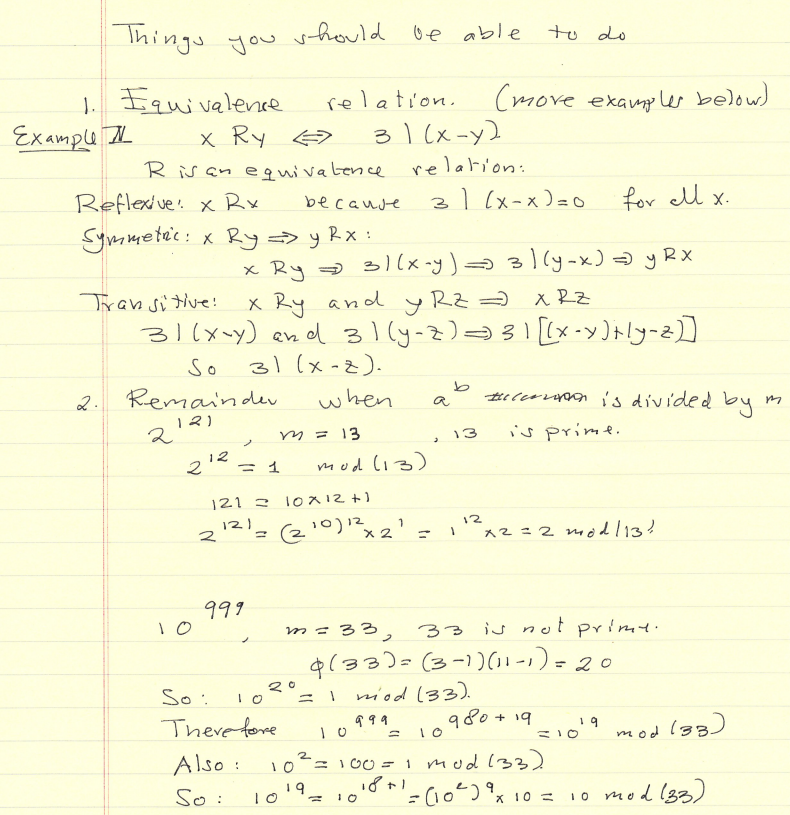 Things you should be able to do
1. Equivalence relation. (more examples below)
Example IV x Ry ⇔ 3 | (x-y)
R is an equivalence relation:
Reflexive: x Rx because 3 | (x-x)=0 for all x.
Symmetric: x Ry ⇒ y Rx :
x Ry ⇒ 3|(x-y) ⇒ 3|(y-x) ⇒ y R x
Transitive: x Ry and y Rz ⇒ x Rz
3 | (x-y) and 3 | (y-z) ⇒ 3 | [(x-y)+(y-z)]
So 3 | (x-z).
2. Remainder when a^b is divided by m
2^121, m = 13, 13 is prime.
2^12 = 1 mod (13)
121 = 10 x 12 + 1
2^121 = (2^10)^12 x 2^1 = 1^12 x 2 = 2 mod (13)
10^999, m = 33, 33 is not prime.
φ(33) = (3-1)(11-1) = 20
So: 10^20 = 1 mod (33).
Therefore 10^999 = 10^980+19 = 10^19 mod (33)
Also: 10^2 = 100 = 1 mod (33)
So: 10^19 = 10^18+1 = (10^2)^9 x 10 = 10 mod (33)